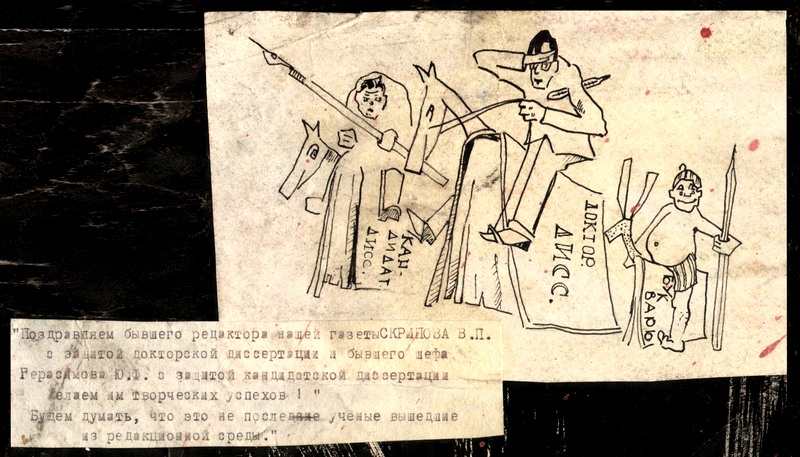 КАН-
ДИДАТ
ДИСС.
ДОКТОР.
ДИСС.
БУК
ВАРЬ
"Поздравляем бывшего редактора нашей газетыСКРИПОВА В.П.
с защитой докторской диссертации и бывшего шефа
Герасимова Ю.Ф. с защитой кандидатской диссертации
Желаем им творческих успехов ! "
"Будем думать, что это не последние ученые вышедшие
из редакционной среды."